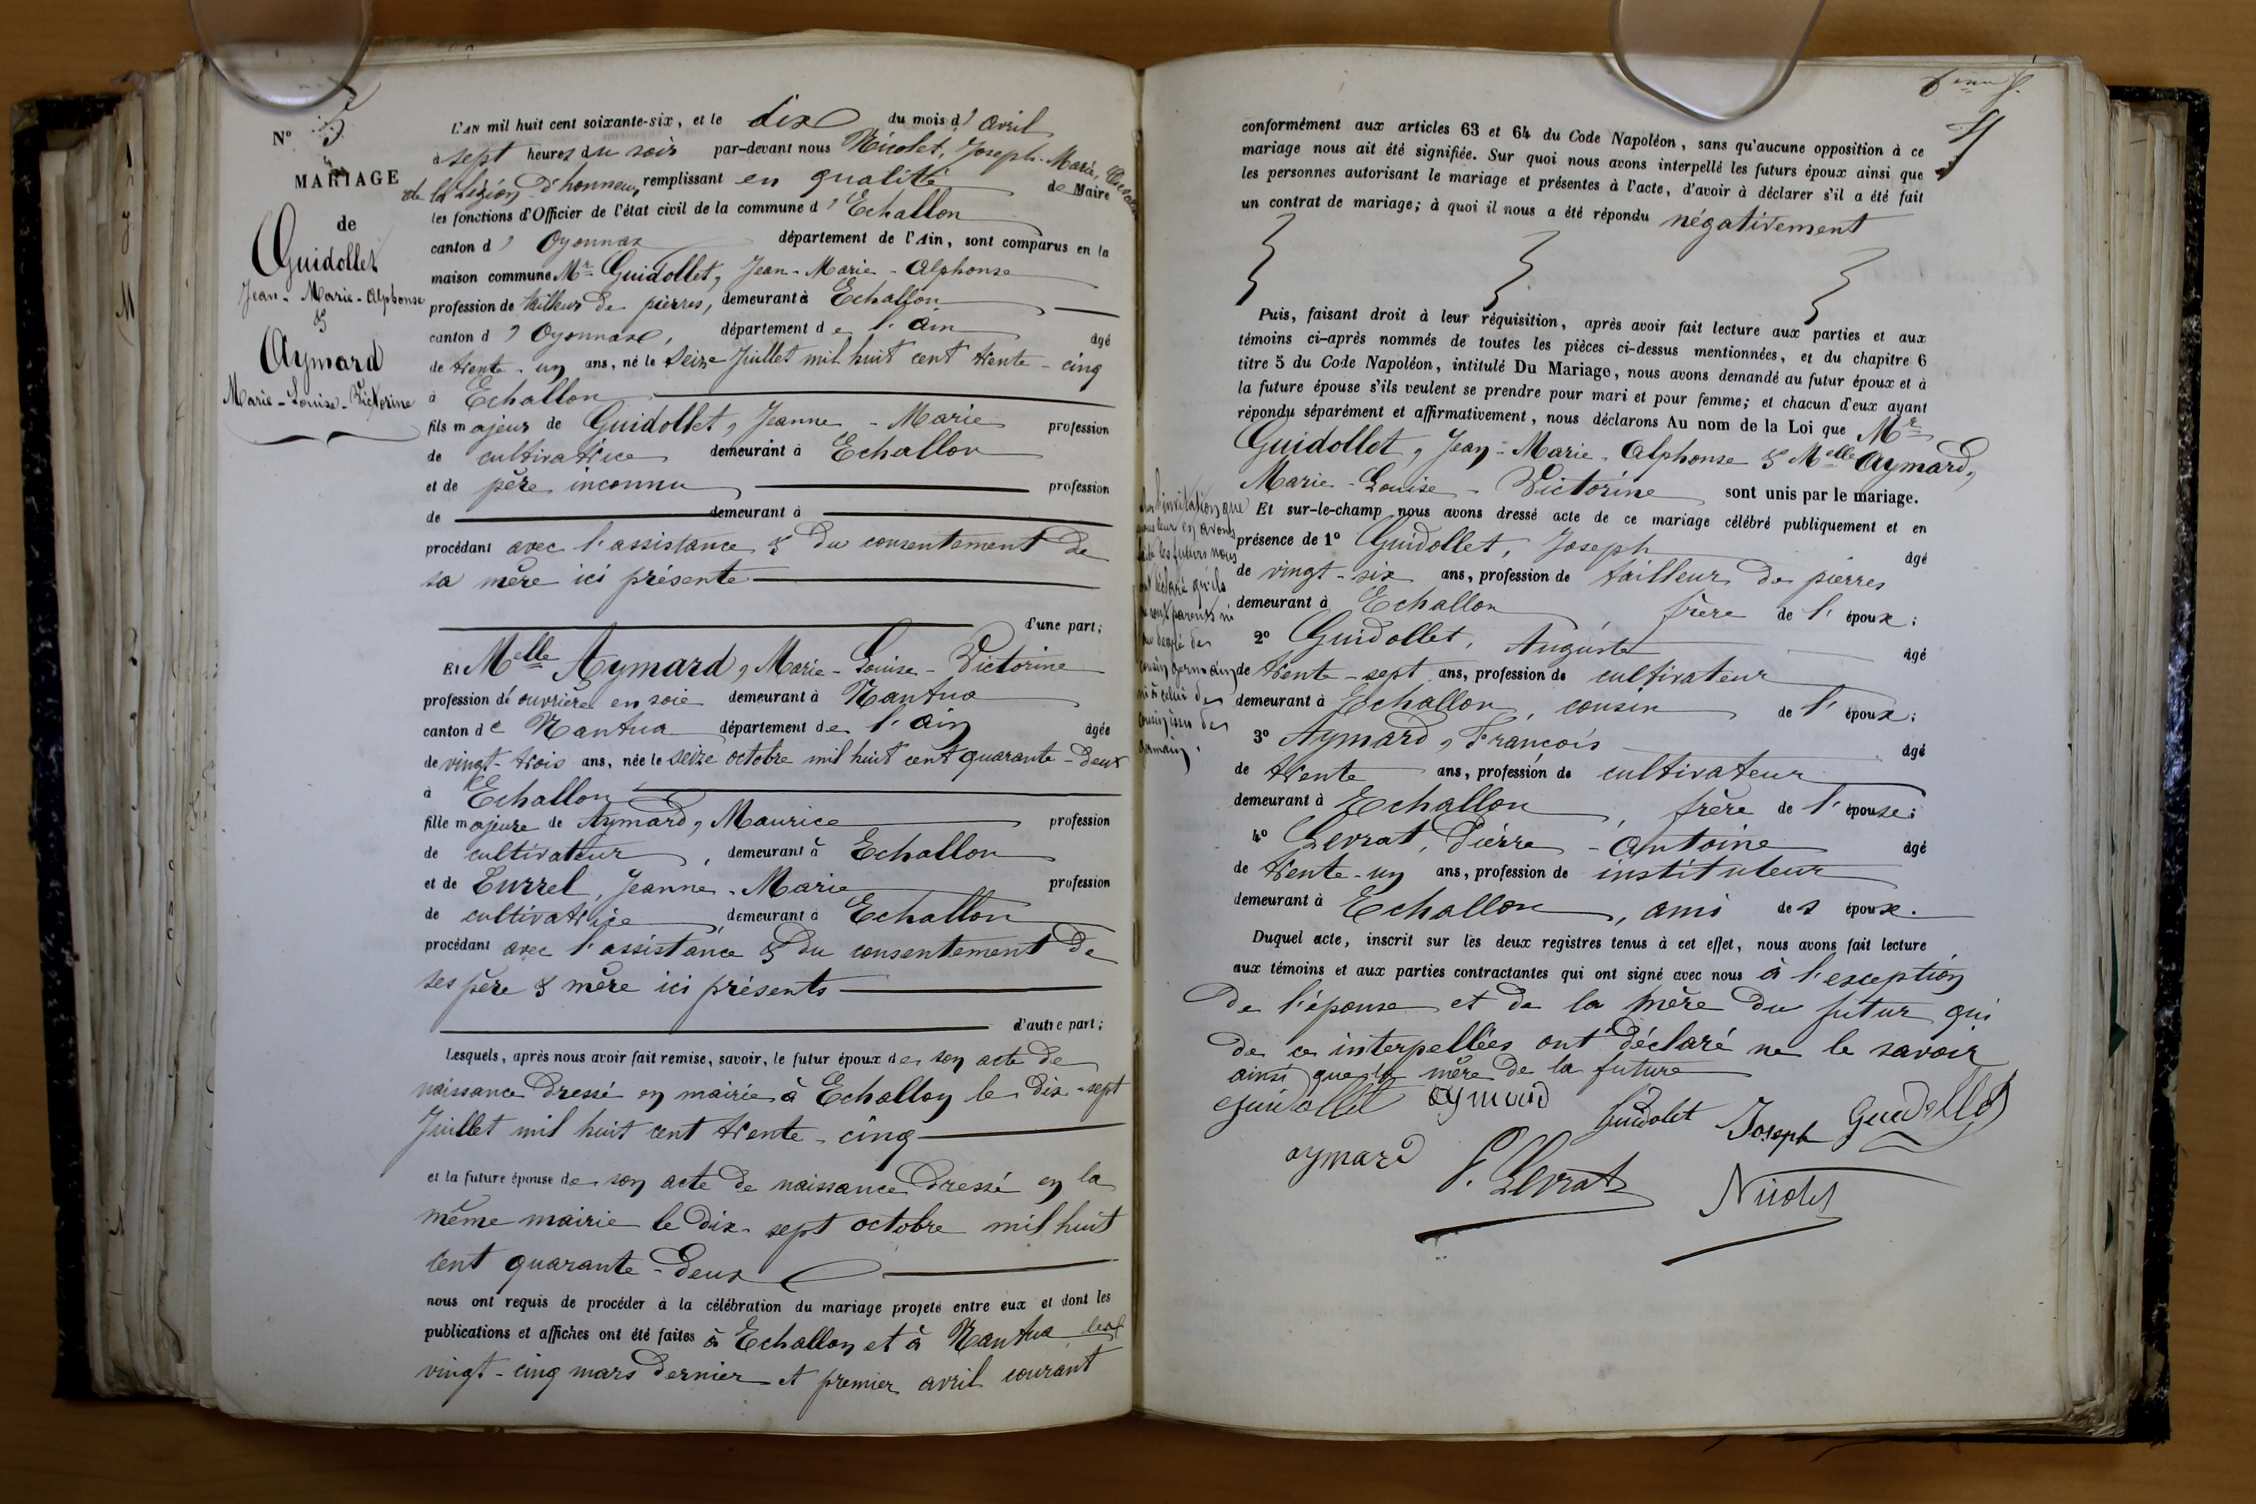 N° 5
MARIAGE
de
Guidollet
Jean-Marie-Alphonse
&
Aymard
Marie-Louise-Victorine
L'AN mil huit cent soixante-six, et le dix du mois d'avril
à sept heures du soir par-devant nous Nicolet, Joseph-Marie,
de la Légion d'honneur, remplissant en qualité de Maire
les fonctions d'Officier de l'état civil de la commune d'Echallon
canton d'Oyonnax département de l'Ain, sont comparus en la
maison commune Mr Guidollet, Jean-Marie-Alphonse
profession de tailleur de pierres, demeurant à Echallon
canton d'Oyonnax, département de l'Ain âgé
de trente-un ans, né le seize Juillet mil huit cent trente-cinq
à Echallon
fils majeur de Guidollet, Jeanne-Marie profession
de cultivatrice demeurant à Echallon
et de père inconnu profession
de demeurant à
procédant avec l'assistance & du consentement de
sa mère ici présente
d'une part;
Et Melle Aymard, Marie-Louise-Victorine
profession d'ouvrière en soie demeurant à Nantua
canton de Nantua département de l'Ain âgée
de vingt-trois ans, née le seize octobre mil huit cent quarante-deux
à Echallon
fille majeure de Aymard, Maurice profession
de cultivateur, demeurant à Echallon
et de Burrel, Jeanne-Marie profession
de cultivatrice demeurant à Echallon
procédant avec l'assistance & du consentement de
ses père & mère ici présents
d'autre part;
Lesquels, après nous avoir fait remise, savoir, le futur époux de son acte de
naissance dressé en mairie à Echallon le dix-sept
Juillet mil huit cent trente-cinq
et la future épouse de son acte de naissance dressé en la
même mairie le dix-sept octobre mil huit
cent quarante-deux
nous ont requis de procéder à la célébration du mariage projeté entre eux et dont les
publications et affiches ont été faites à Echallon et à Nantua les
vingt-cinq mars dernier et premier avril courant
conformément aux articles 63 et 64 du Code Napoléon, sans qu'aucune opposition à ce
mariage nous ait été signifiée. Sur quoi nous avons interpellé les futurs époux ainsi que
les personnes autorisant le mariage et présentes à l'acte, d'avoir à déclarer s'il a été fait
un contrat de mariage; à quoi il nous a été répondu négativement
Puis, faisant droit à leur réquisition, après avoir fait lecture aux parties et aux
témoins ci-après nommés de toutes les pièces ci-dessus mentionnées, et du chapitre 6
titre 5 du Code Napoléon, intitulé Du Mariage, nous avons demandé au futur époux et à
la future épouse s'ils veulent se prendre pour mari et pour femme; et chacun d'eux ayant
répondu séparément et affirmativement, nous déclarons Au nom de la Loi que Mr
Guidollet, Jean-Marie-Alphonse & Melle Aymard,
Marie-Louise-Victorine sont unis par le mariage.
Et sur-le-champ nous avons dressé acte de ce mariage célébré publiquement et en
présence de 1° Guidollet, Joseph âgé
de vingt-six ans, profession de tailleur de pierres
demeurant à Echallon frère de l'époux;
2° Guidollet, Auguste âgé
de trente-sept ans, profession de cultivateur
demeurant à Echallon, cousin de l'époux;
3° Aymard, François âgé
de trente ans, profession de cultivateur
demeurant à Echallon, frère de l'épouse;
4° Levrat, Pierre-Antoine âgé
de trente-un ans, profession de instituteur
demeurant à Echallon, ami des époux.
Duquel acte, inscrit sur les deux registres tenus à cet effet, nous avons fait lecture
aux témoins et aux parties contractantes qui ont signé avec nous à l'exception
de l'épouse et de la mère du futur qui
de ce interpellées ont déclaré ne le savoir
ainsi que la mère de la future
l'invitation que
leur en avons
les futurs nous
déclaré qu'ils
ne sont parents ni
au degré de
cousin germain
ni à celui de
cousin issu de
germain.
Guidollet aymard Guidolet Joseph Guidollet
aymard P. Levrat Nicolet